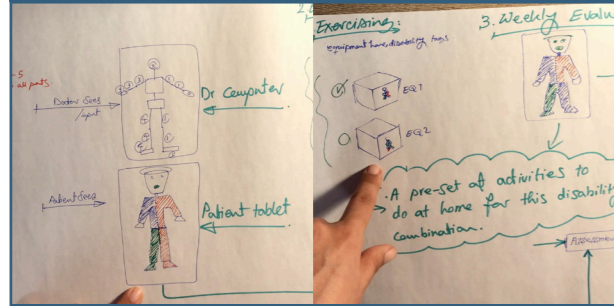 all parts.
Doctor Sees
/input
Dr computer
Patient Sees
Patient tablet
Exercising:
equipment have disability tags
EQ1
EQ2
3. Weekly Evalu
. A pre-set of activities to
do at home for this disability
combination.